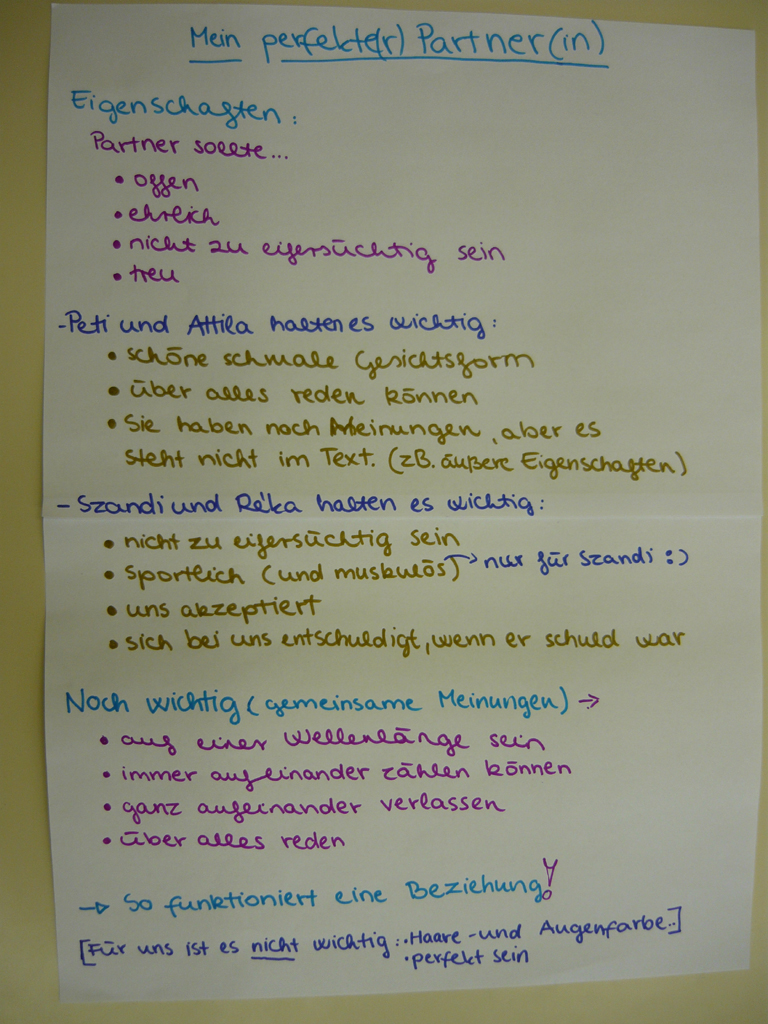 Mein perfekte(r) Partner(in)
Eigenschaften:
Partner sollte...
• offen
• ehrlich
• nicht zu eifersüchtig sein
• treu
-Peti und Attila halten es wichtig:
• schöne schmale Gesichtsform
• über alles reden können
• Sie haben noch Meinungen, aber es
steht nicht im Text. (zB. äußere Eigenschaften)
- Szandi und Réka halten es wichtig:
• nicht zu eifersüchtig sein
• sportlich (und muskulös) → nur für Szandi :)
• uns akzeptiert
• sich bei uns entschuldigt, wenn er schuld war
Noch wichtig (gemeinsame Meinungen) →
• auf einer Wellenlänge sein
• immer aufeinander zählen können
• ganz aufeinander verlassen
• über alles reden
→ So funktioniert eine Beziehung!
[Für uns ist es nicht wichtig: • Haare - und Augenfarbe..]
• perfekt sein